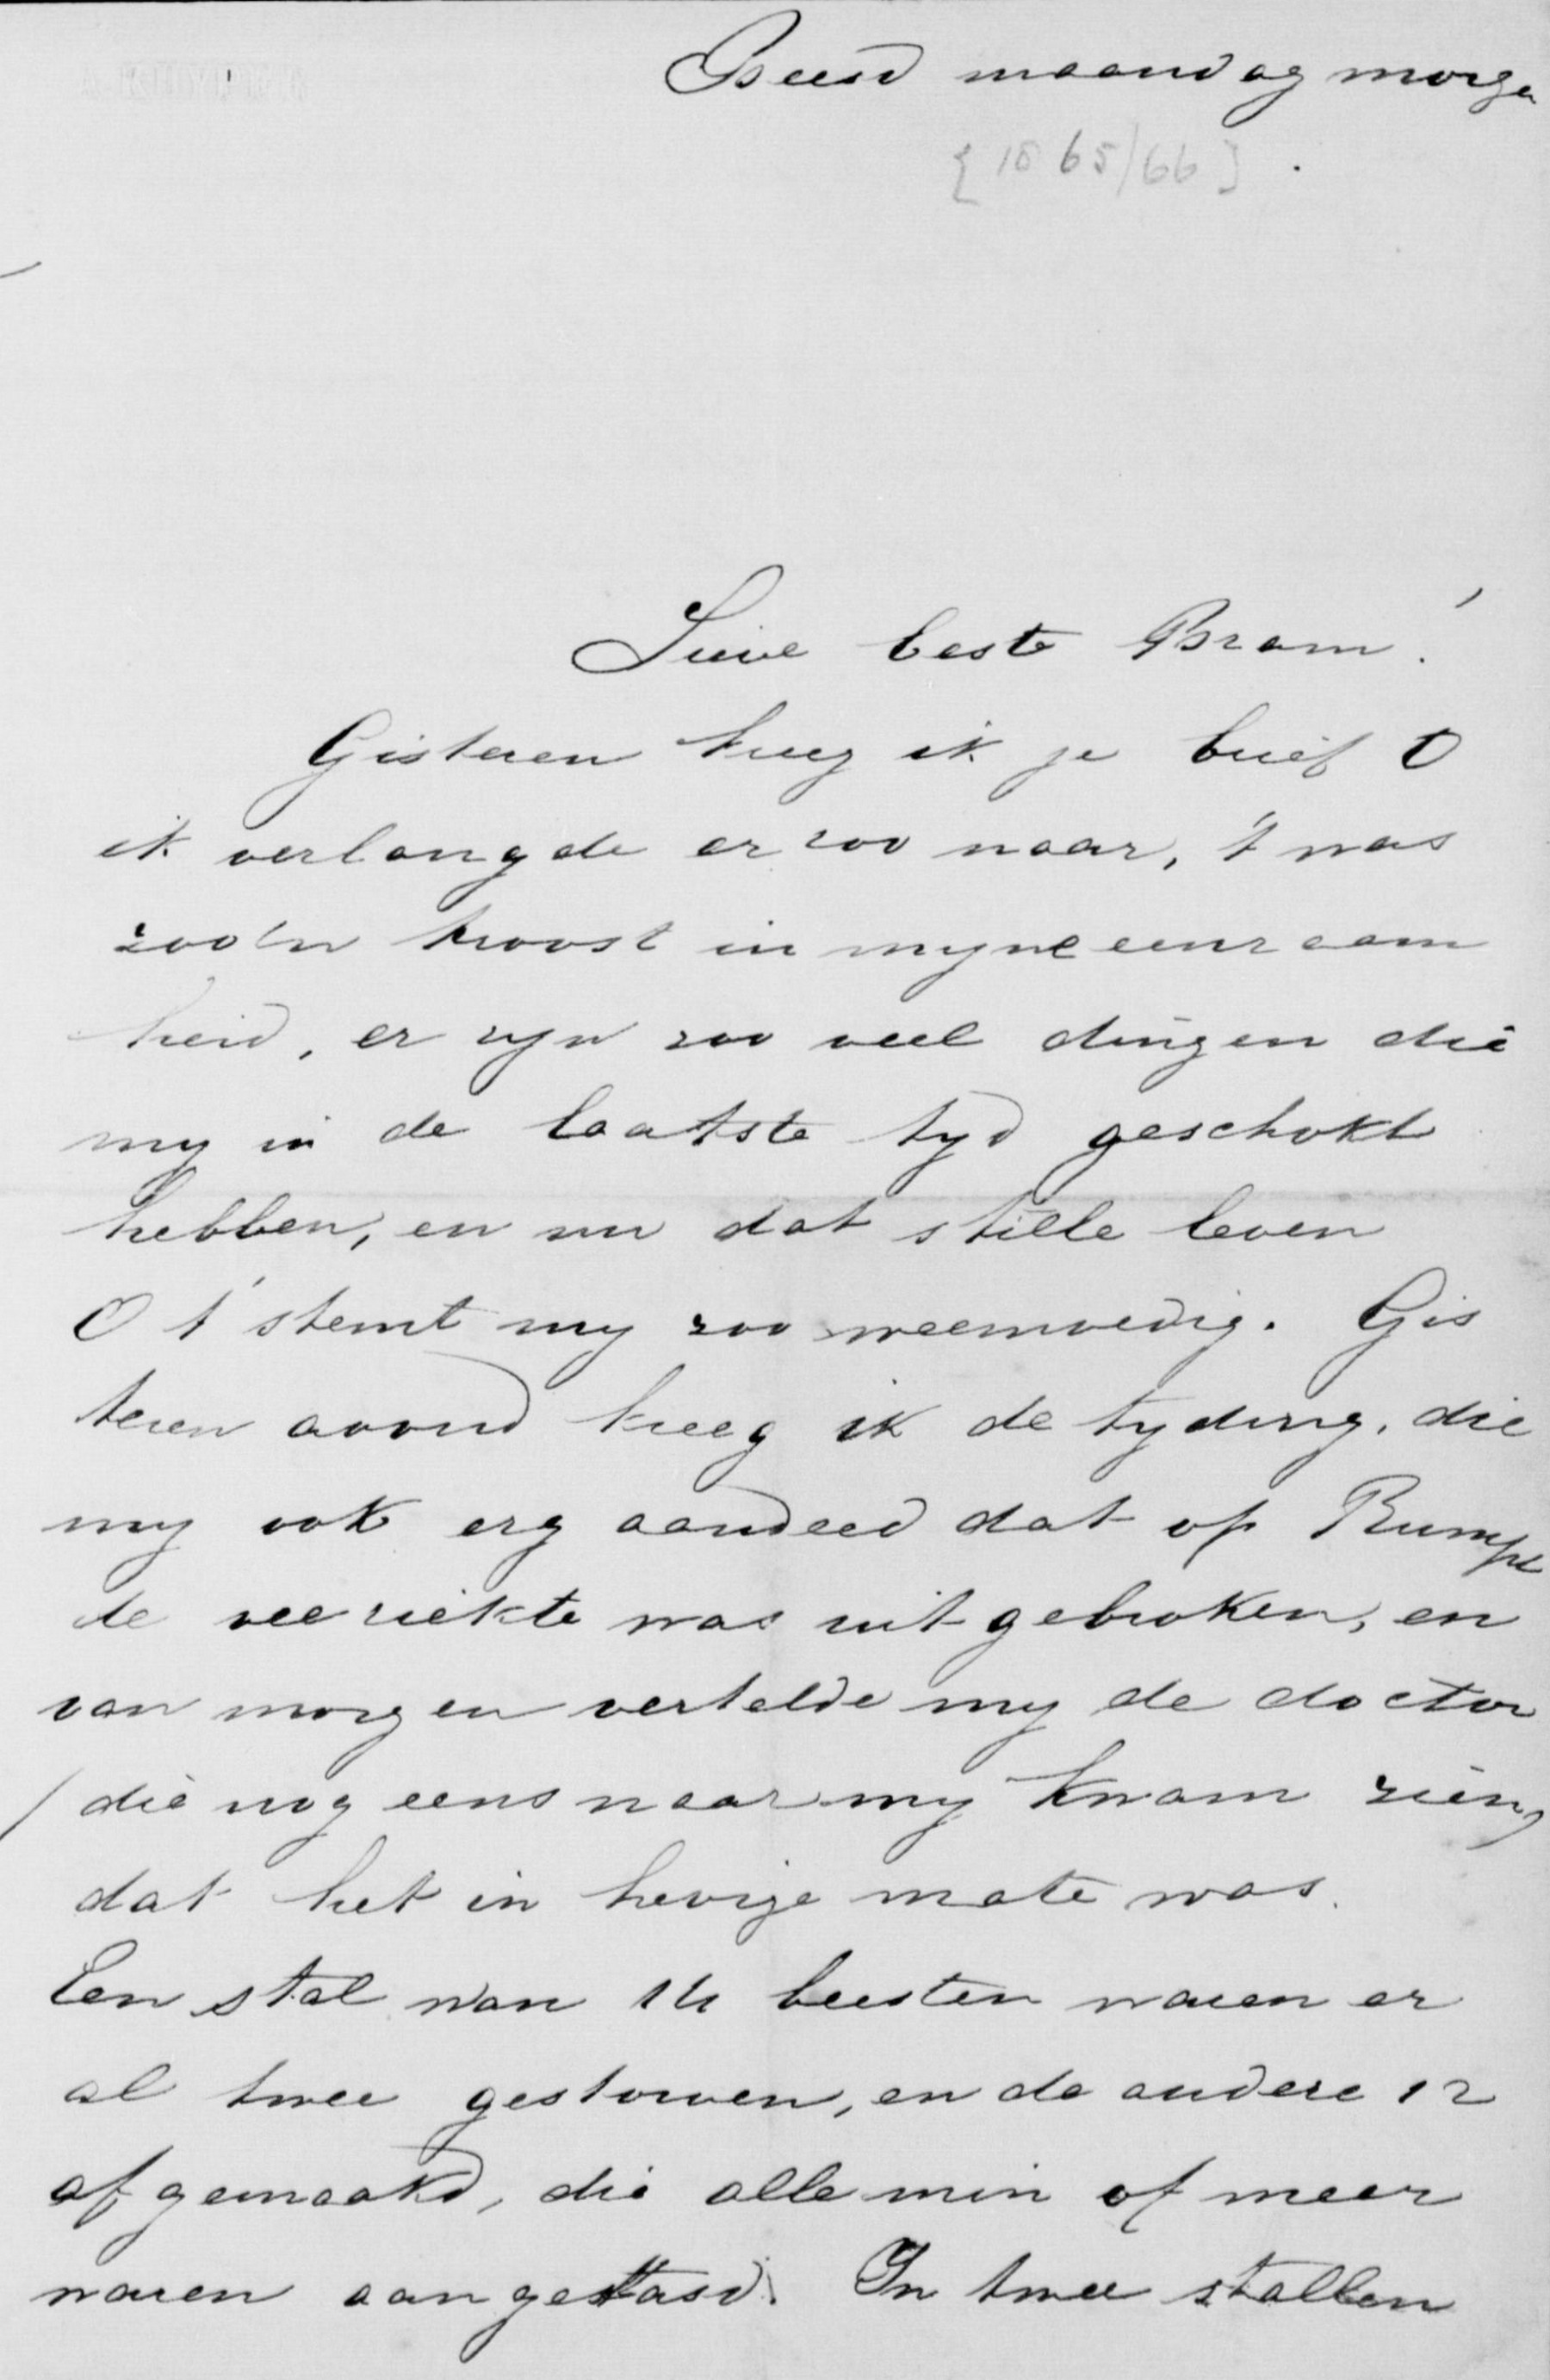 Beesd maandag morgen
[1865/66].
Lieve beste Bram!
Gisteren kreeg ik je brief O
ik verlangde er zoo naar, 't was
zoo'n troost in myne eenzaam
heid, er zyn zoo veel dingen die
my in de laatste tyd geschokt
hebben, en nu dat stille leven
O t' stemt my zoo weemoedig. Gis
teren avond kreeg ik de tyding, die
my ook erg aandeed dat op Rumpt
de veeziekte was uitgebroken, en
van morgen vertelde my de doctor
/die nog eens naar my kwam zien)
dat het in hevige mate was.
Een stal van 14 beesten waren er
al twee gestorven, en de andere 12
afgemaakt, die alle min of meer
waren aangetasd. In twee stallen